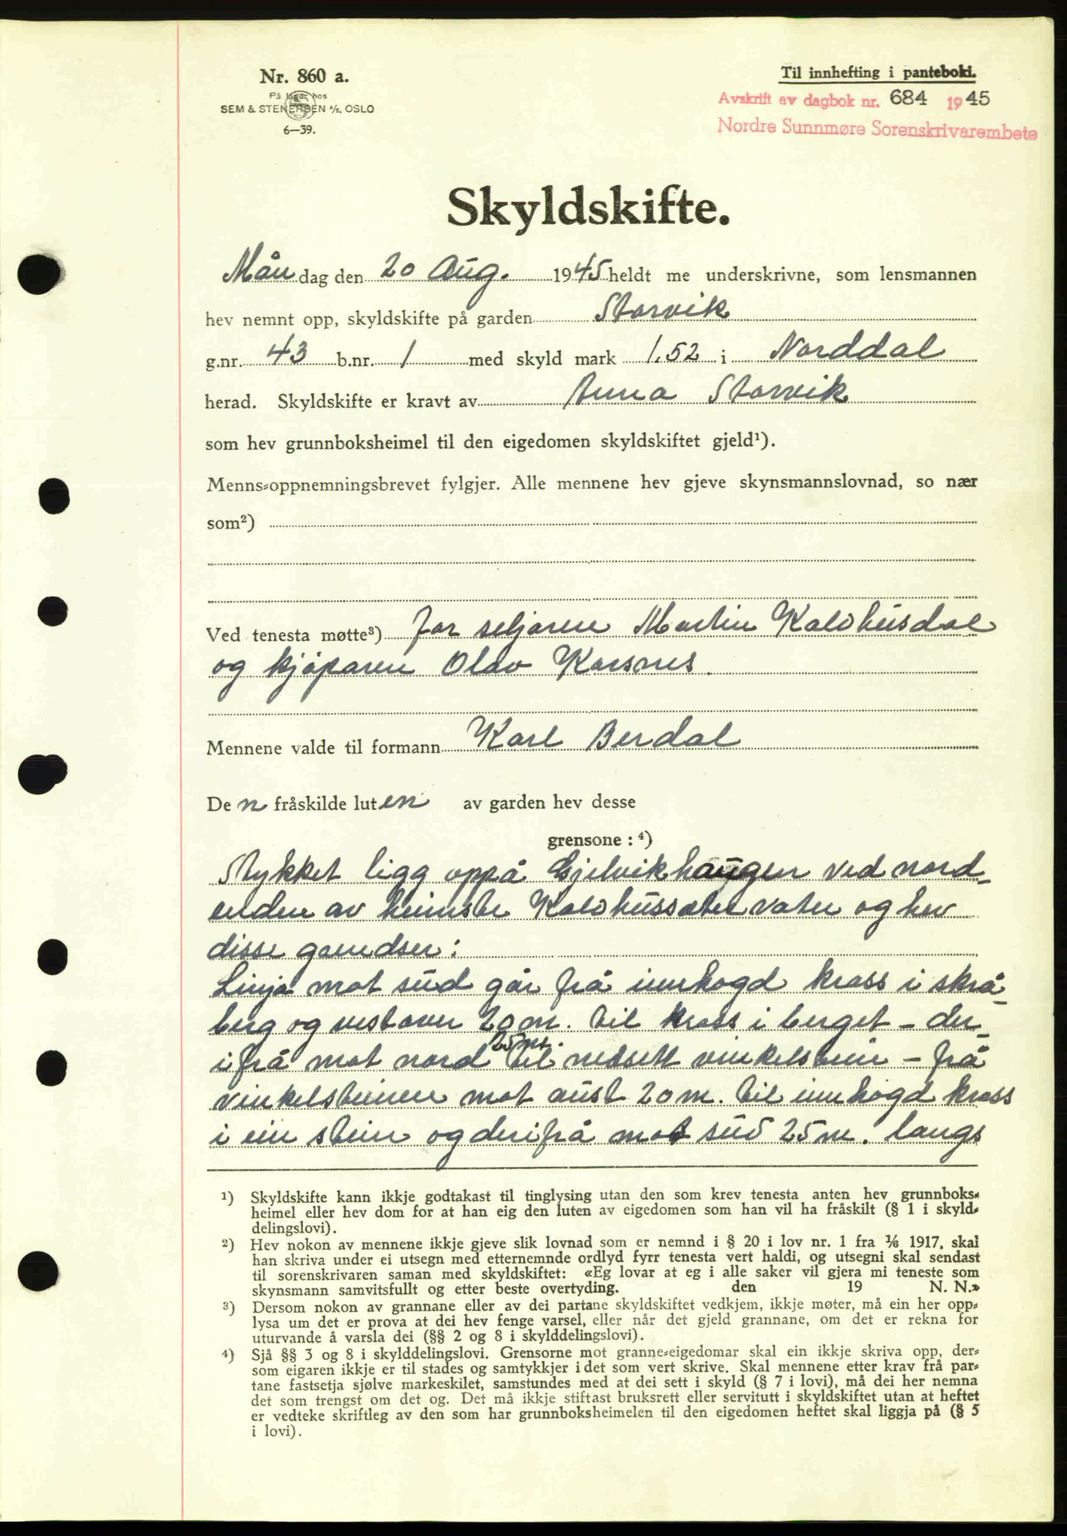 Nr. 860 a.
På lager hos
SEM & STENERSEN A/S, OSLO
6—39.
Til innhefting i panteboki.
Avskrift av dagbok nr. 684 1945
Nordre Sunnmøre Sorenskrivarembete
Skyldskifte.
Måndag den 20 Aug. 1945 heldt me underskrivne, som lensmannen
hev nemnt opp, skyldskifte på garden Storvik
g.nr. 43 b.nr. 1 med skyld mark 1.52 i Norddal
herad. Skyldskifte er kravt av Anna Storvik
som hev grunnboksheimel til den eigedomen skyldskiftet gjeld¹).
Menns⸗oppnemningsbrevet fylgjer. Alle mennene hev gjeve skynsmannslovnad, so nær
som²)
Ved tenesta møtte³) for seljaren Martin Kaldhusdal
og kjøparen Olav Korsnes.
Mennene valde til formann Karl Berdal
Den fråskilde luten av garden hev desse
grensone : ⁴)
Stykket ligg oppå Gjelvikhaugen ved nord-
enden av heimste Kaldhussætervatn og hev
disse grendser:
Linja mot süd går frå innhogd kross i skrå-
berg og vestover 20 m. til kross i berget – der-
ifrå mot nord 25 mt. til nedsett vinkelstein – frå
vinkelsteinen mot aust 20 m. til innhogd kross
i ein stein og derifrå mot süd 25 m. langs
¹) Skyldskifte kann ikkje godtakast til tinglysing utan den som krev tenesta anten hev grunnboks⸗
heimel eller hev dom for at han eig den luten av eigedomen som han vil ha fråskilt (§ 1 i skyld⸗
delingslovi).
²) Hev nokon av mennene ikkje gjeve slik lovnad som er nemnd i § 20 i lov nr. 1 fra ⅙ 1917, skal
han skriva under ei utsegn med etternemnde ordlyd fyrr tenesta vert haldi, og utsegni skal sendast
til sorenskrivaren saman med skyldskiftet: «Eg lovar at eg i alle saker vil gjera mi teneste som
skynsmann samvitsfullt og etter beste overtyding. den 19 N. N.»
³) Dersom nokon av grannane eller av dei partane skyldskiftet vedkjem, ikkje møter, må ein her opp⸗
lysa um det er prova at dei hev fenge varsel, eller når det gjeld grannane, om det er rekna for
uturvande å varsla dei (§§ 2 og 8 i skylddelingslovi).
⁴) Sjå §§ 3 og 8 i skylddelingslovi. Grensorne mot granne⸗eigedomar skal ein ikkje skriva opp, der⸗
som eigaren ikkje er til stades og samtykkjer i det som vert skrive. Skal mennene etter krav frå par⸗
tane fastsetja sjølve markeskilet, samstundes med at dei sett i skyld (§ 7 i lovi), må dei her nemna
det som trengst om det og. Det må ikkje stiftast bruksrett eller servitutt i skyldskiftet utan at heftet
er vedteke skriftleg av den som har grunnboksheimelen til den eigedomen heftet skal liggja på (§ 5
i lovi).